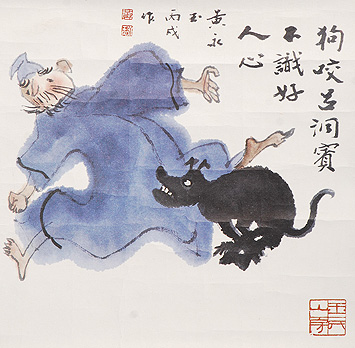 狗咬吕洞宾
不識好
人心
黄永
玉
丙戌
作